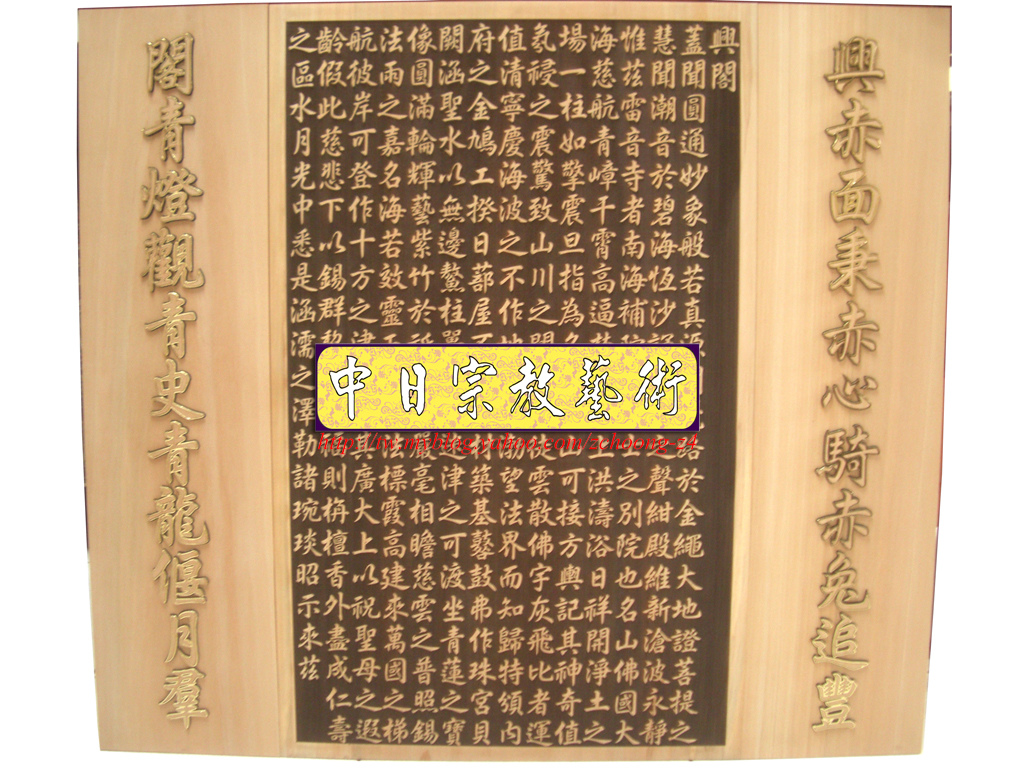 興赤面秉赤心騎赤兔追豐
興閣
蓋聞圓通妙象般若真 於金繩大地證菩提之
慧聞潮音於碧海恆沙 之聲紺殿維新滄波永靜
惟茲雷音寺者南海補 之別院也名山佛國大
海慈航青嶂千霄高逼 洪濤浴日祥開淨土之
場一柱如擎震旦指為 山可接方輿記其神奇值
氛祲之震驚致山川之 從雲散佛宇灰飛比者運
值清寧慶海波之不作 望法界而知歸特須內
府之金鳩工揆日蔀屋 築基鼛鼓弗作珠宮貝
闕涵聖水以無邊鰲柱 津之可渡坐青蓮之寶
像圓滿輪輝藝紫竹於 毫相瞻慈雲之普照錫
法雨之嘉名海若效靈 法標霞高建來萬國之梯
航彼岸可登作十方之津 其廣大上以祝聖母之遐
齡假此慈悲下以錫群 則栴檀香外盡成仁壽
之區水月光中悉是涵濡之澤勒諸琬琰昭示來茲
閣青燈觀青史青龍偃月羣
中日宗教藝術
http://tw.myblog.yahoo.com/zchoong-z4